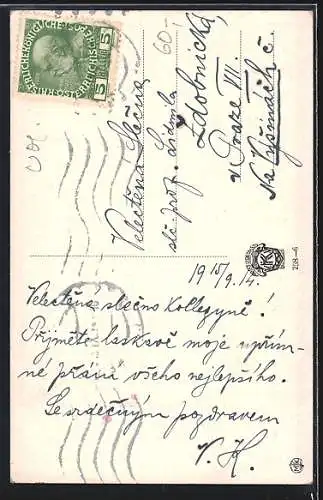 60-
KAISERLICHE KÖNIGLICHE ÖSTERREICHISCHE POST
5 5
Velectěná Slečna
slč. prof. Lidmila
Zdobnická,
v Praze VII.
Na Výšinách č.
K
208-6
19 15/9. 14.
Velectěná slečno kollegyně!
Přijměte laskavě moje upřím-
né přání všeho nejlepšího.
Se srdečným pozdravem
V. H.